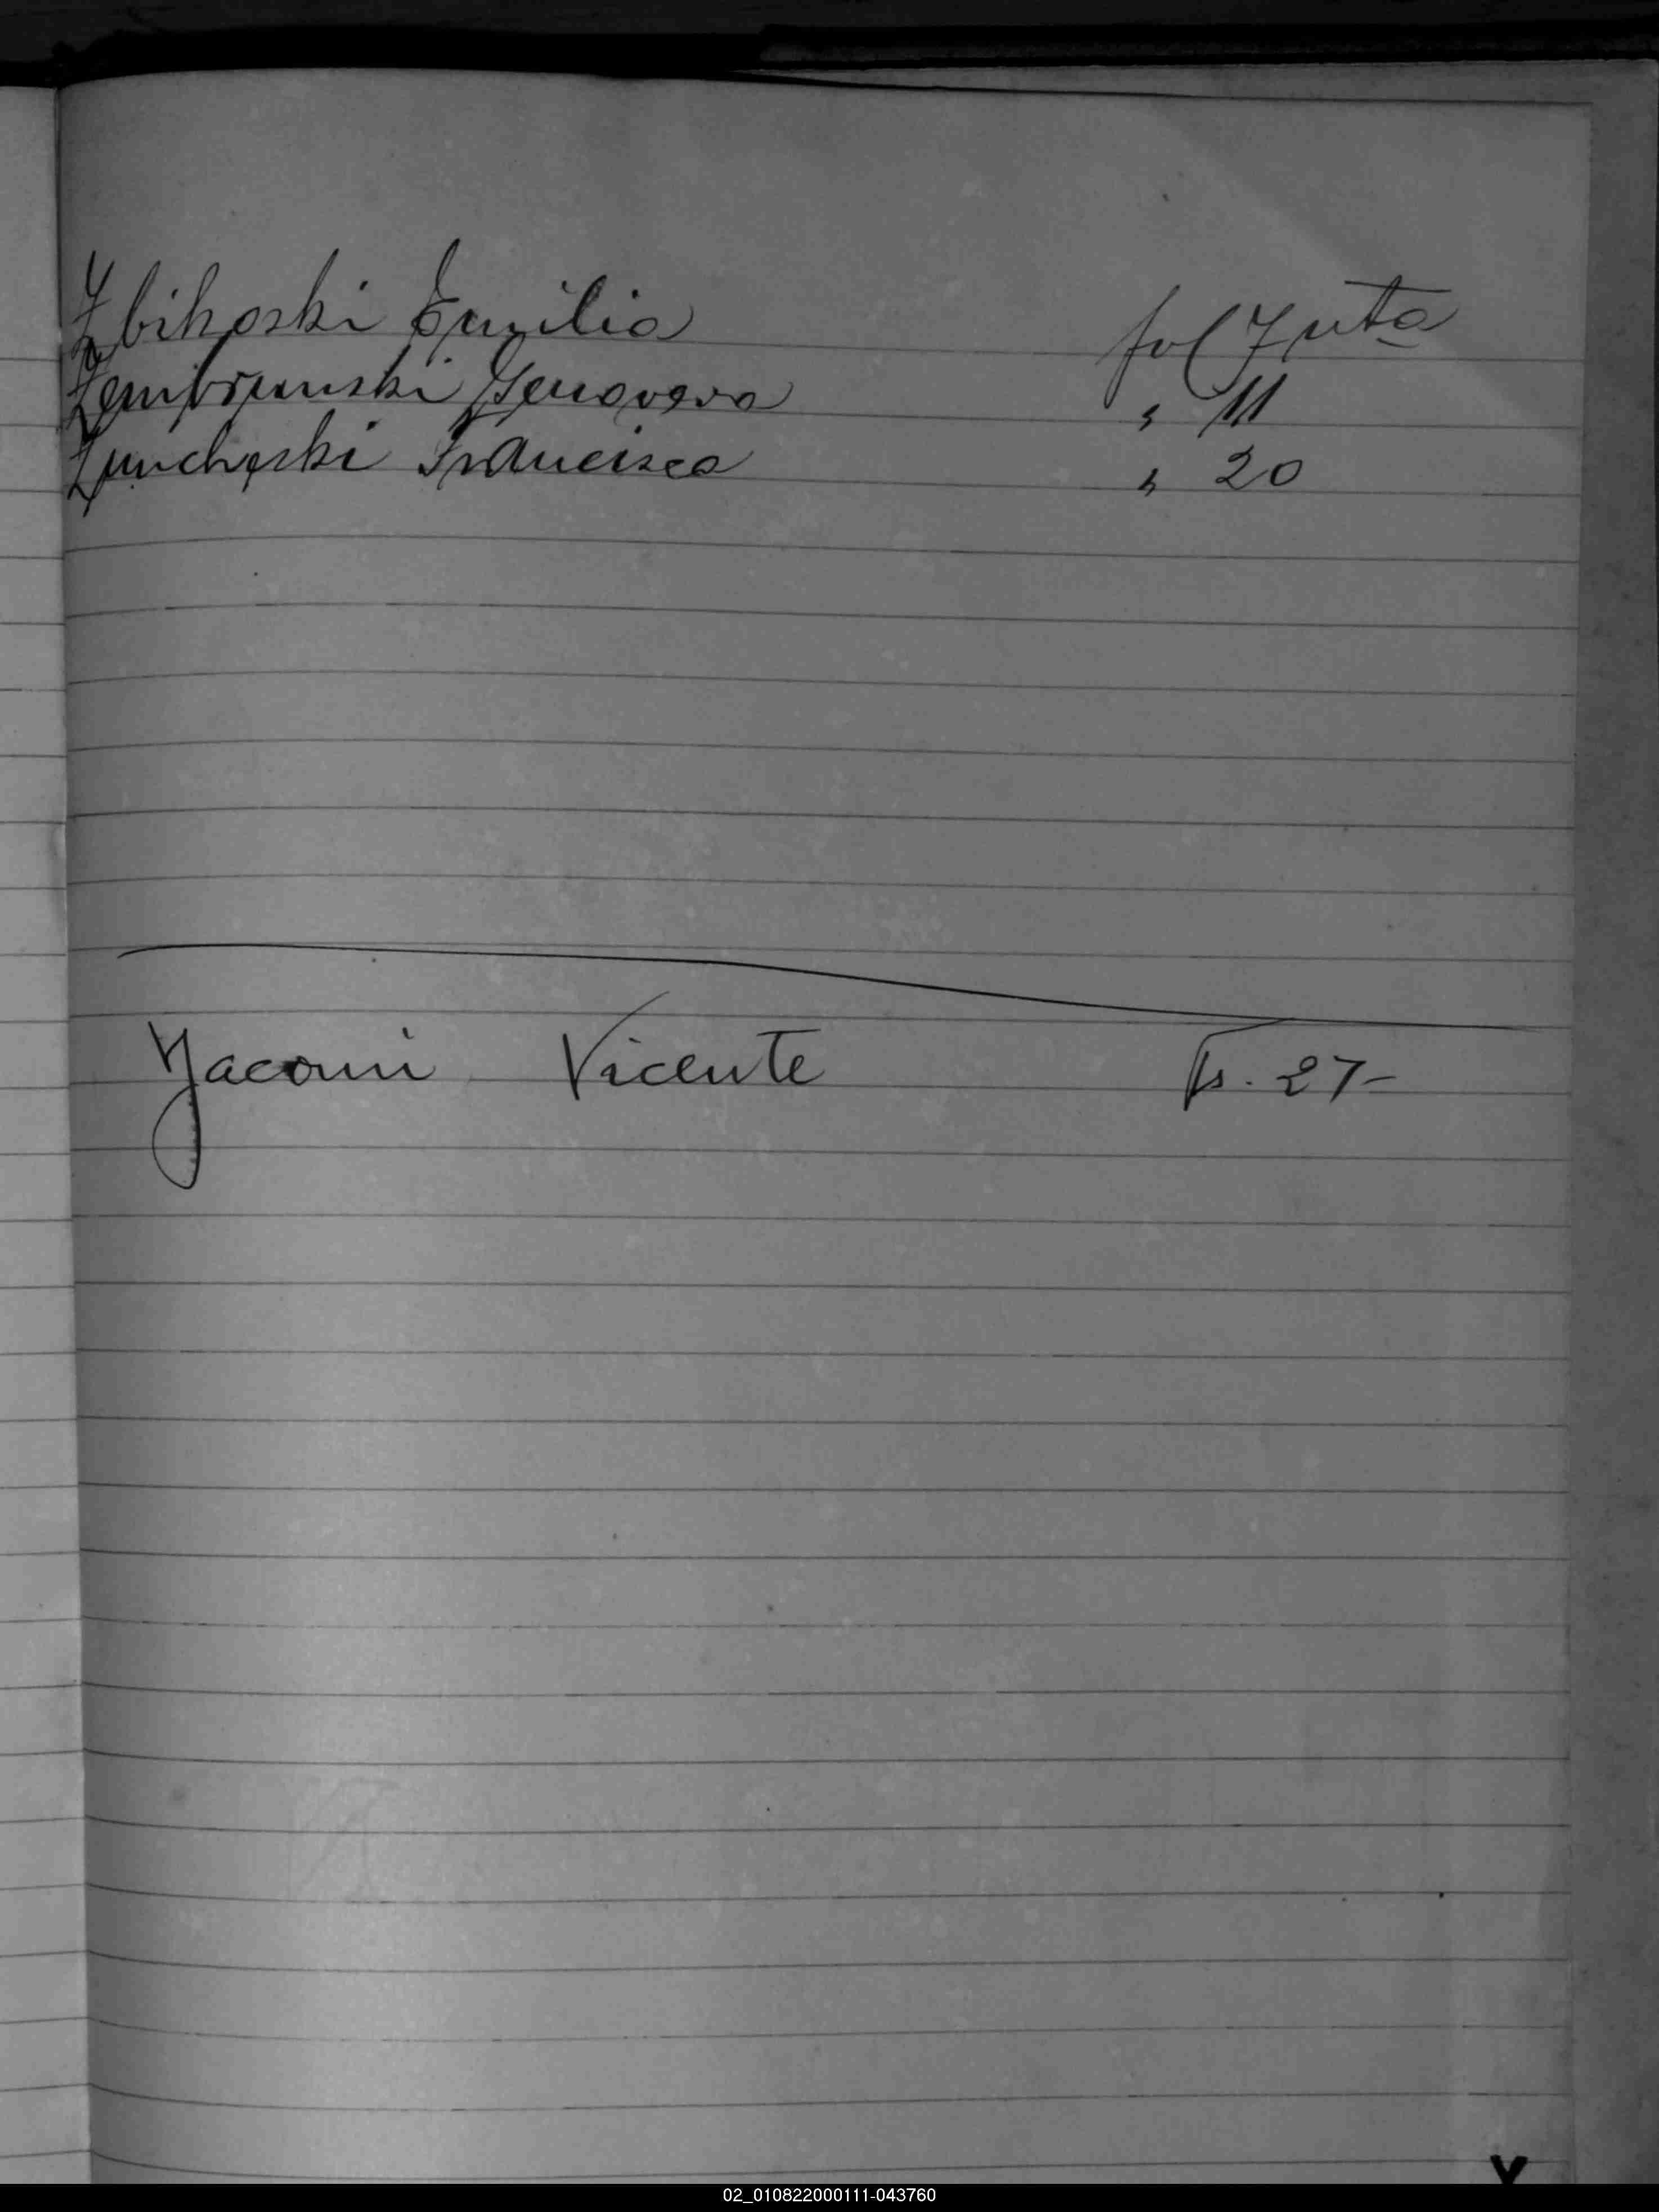 Zbikoski Emilia fol 7 vta
Zembrzunski Genoveva " 11
Francisca " 20
Yacomi Vicente Fs. 27-
Y
02_010822000111-043760